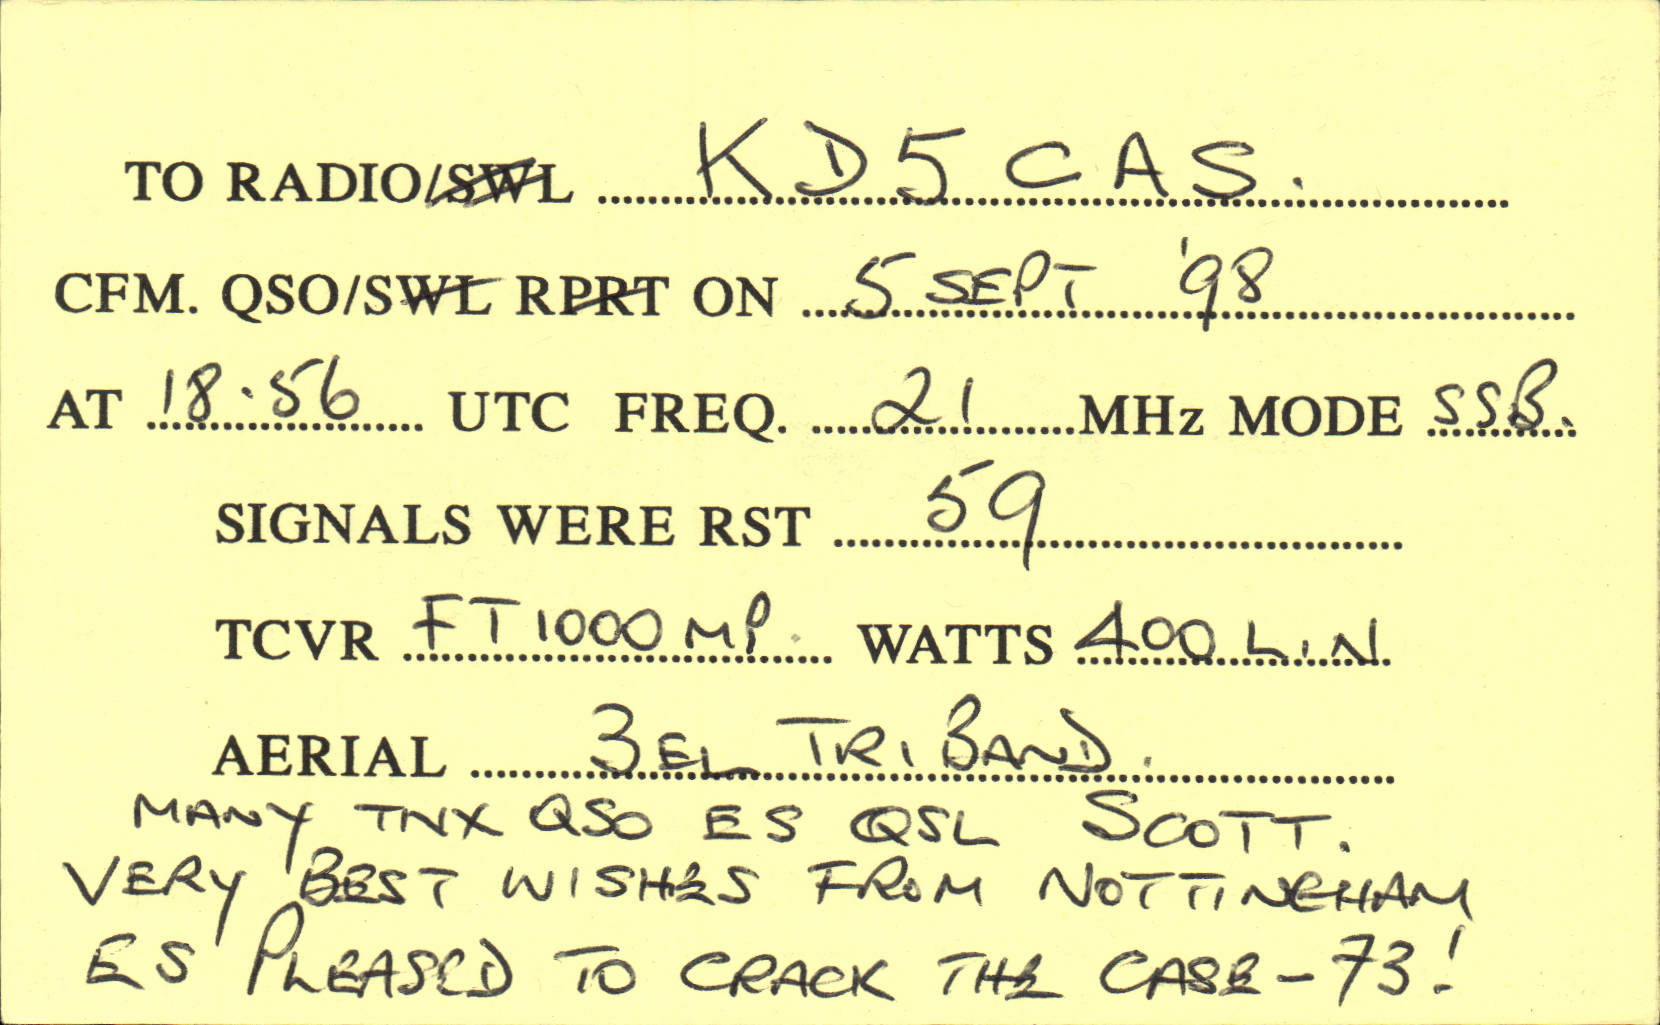 TO RADIO/SWL KD5CAS.
CFM. QSO/SWL RPRT ON 5 SEPT '98
AT 18.56 UTC FREQ. 21 MHz MODE SSB.
SIGNALS WERE RST 59
TCVR FT1000MP. WATTS 400 LIN
AERIAL 3EL TRIBAND.
MANY TNX QSO ES QSL SCOTT.
VERY BEST WISHES FROM NOTTINGHAM
ES PLEASED TO CRACK THE CASE - 73!